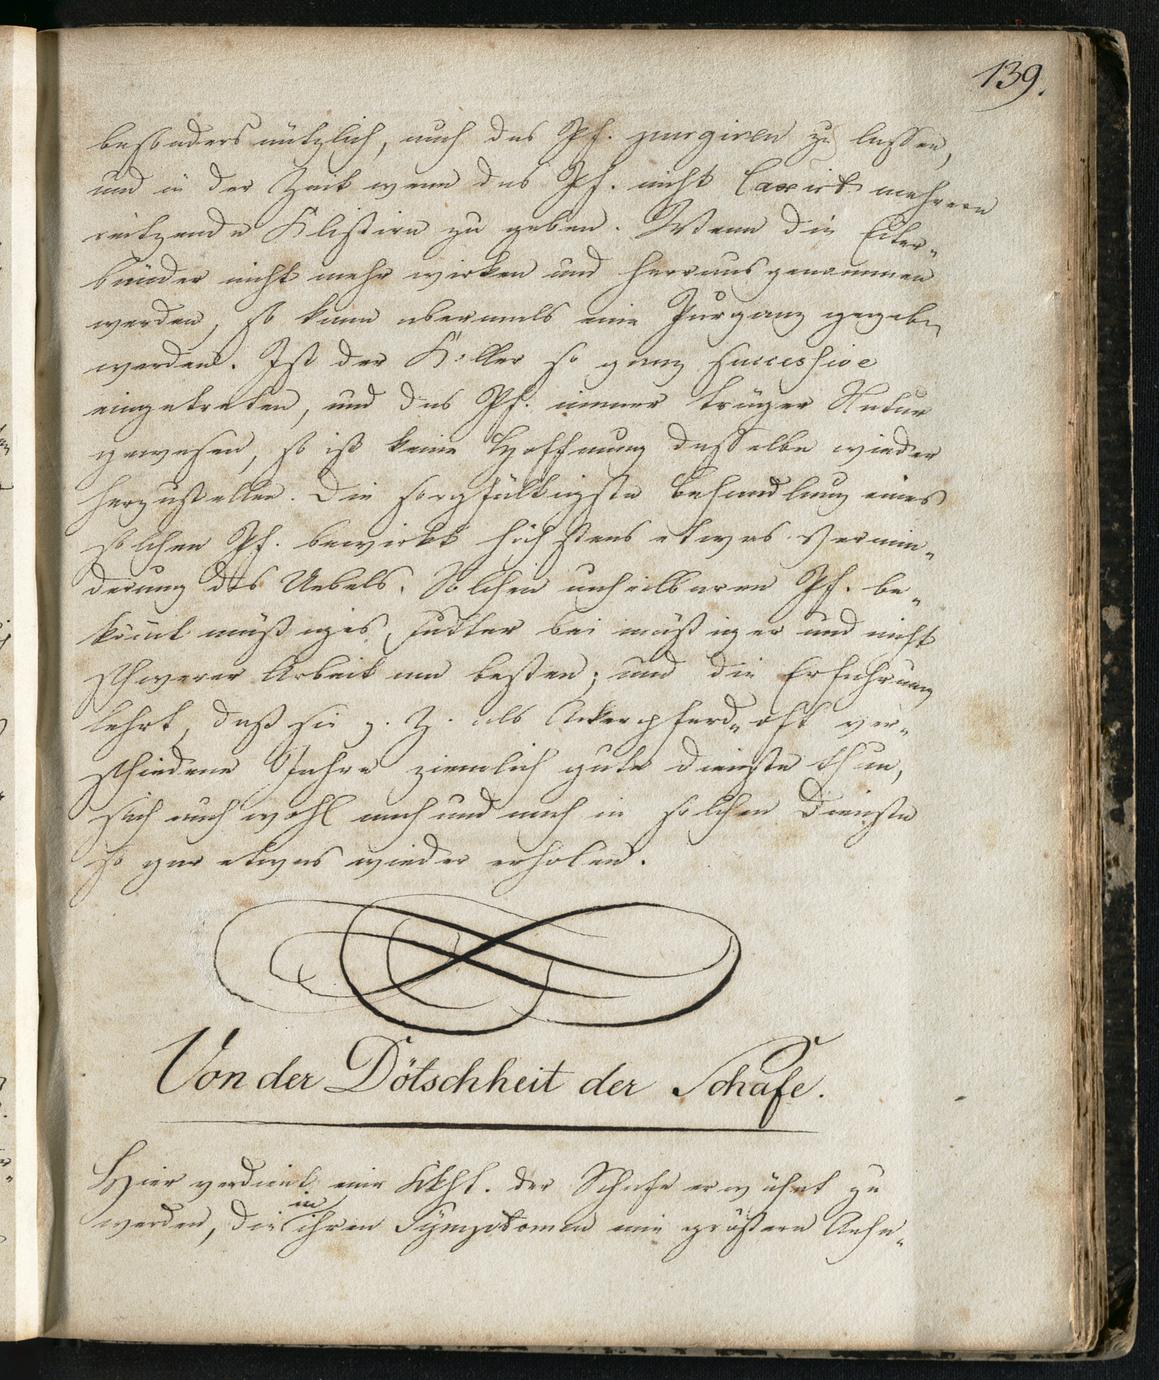 139.
besonders nützlich, auch das Pf. purgiren zu lassen,
und in der Zeit wenn das Pf. nicht laxirt mehrere
reitzende Klistire zu geben. Wenn die Eiter-
bänder nicht mehr wirken und herausgenommen
werden, so kann abermals eine Purganz gegeben
werden. Ist der Koller so ganz successive
eingetreten, und das Pf. immer träger Natur
gewesen, so ist keine Hoffnung dasselbe wieder
herzustellen. Die sorgfältigste Behandlung eines
solchen Pf. bewirkt höchstens etwas Vermin-
derung des Uebels. Solchen unheilbaren Pf. be-
kömt mäßiges Futter bei mäßiger und nicht
schwerer Arbeit am besten; und die Erfahrung
lehrt, daß sie z. Z. als Ackerpferde oft ver-
schiedene Jahre ziemlich gute Dienste thun,
sich auch wohl nach und nach in solchen Dienste
so gar etwas wieder erholen.
Von der Dötschheit der Schafe.
Hier verdient eine Kkht. der Schafe erwähnt zu
werden, die in ihren Symptomen eine größere Aehn-